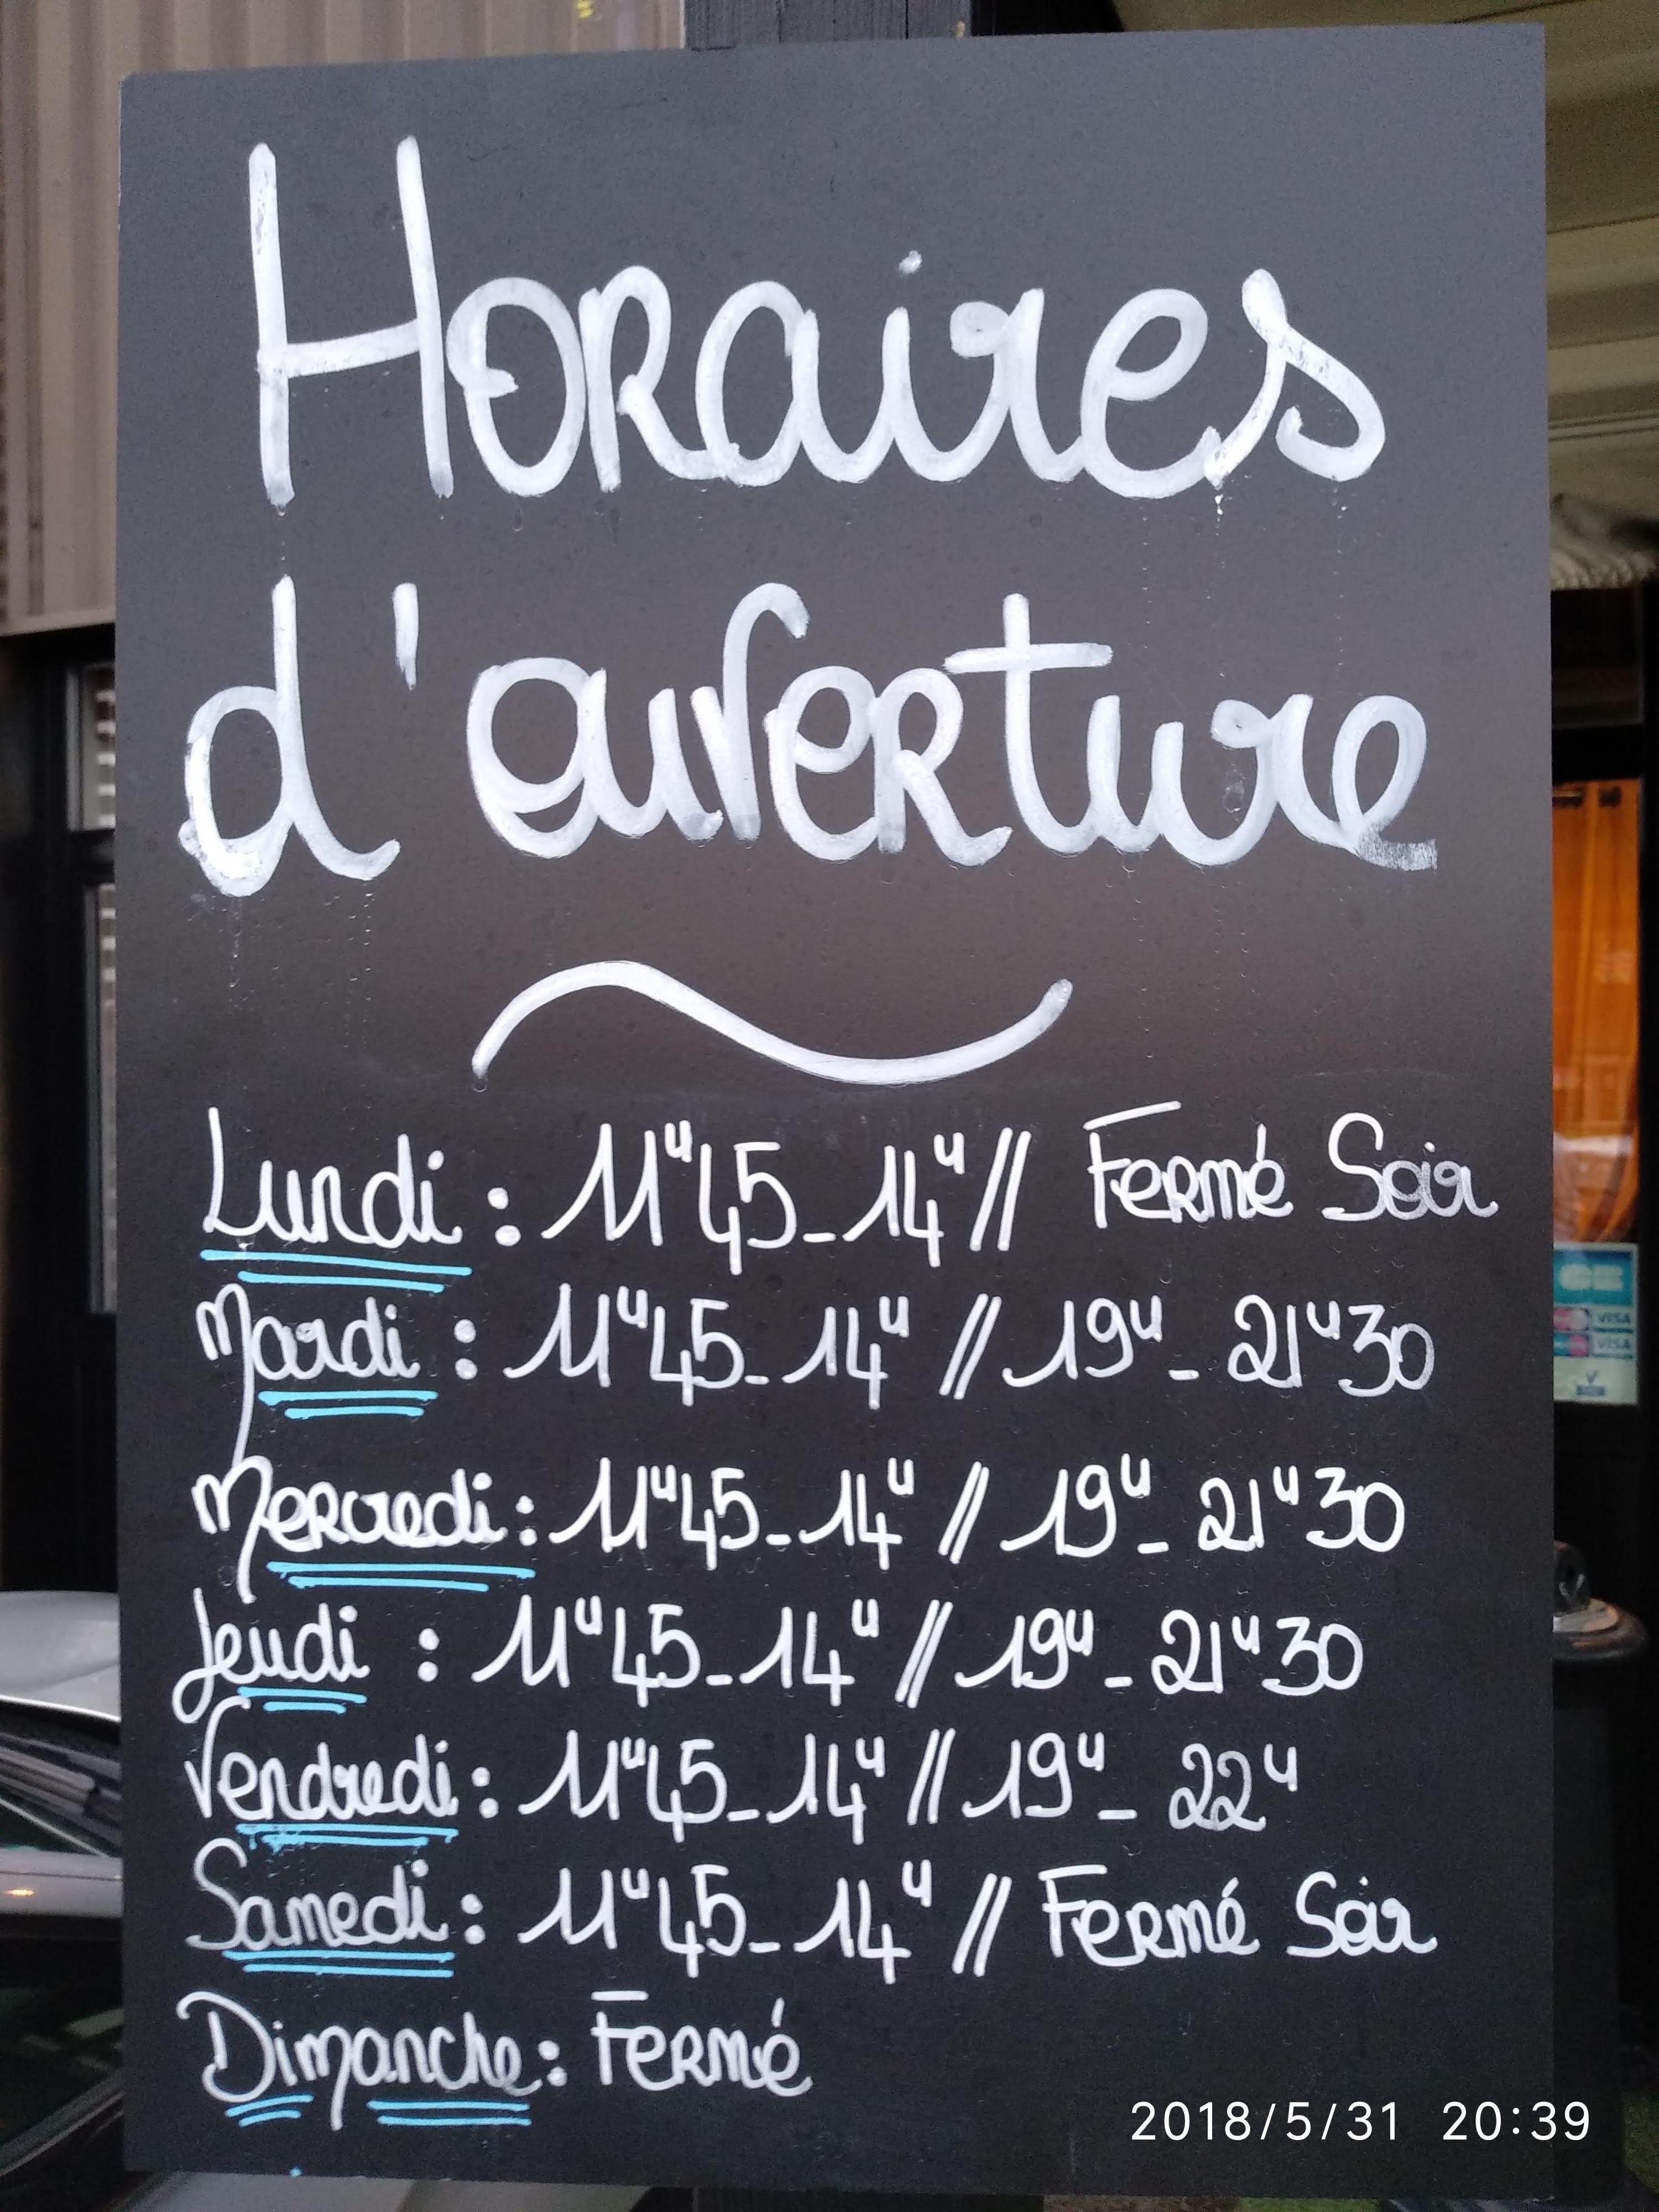 Horaires
d'ouverture
Lundi : 11H45 - 14H // Fermé Soir
Mardi : 11H45 - 14H // 19H - 21H30
Mercredi : 11H45 - 14H // 19H - 21H30
Jeudi : 11H45 - 14H // 19H - 21H30
Vendredi : 11H45 - 14H // 19H - 22H
Samedi : 11H45 - 14H // Fermé Soir
Dimanche : Fermé
CB
VISA
VISA
2018/5/31 20:39